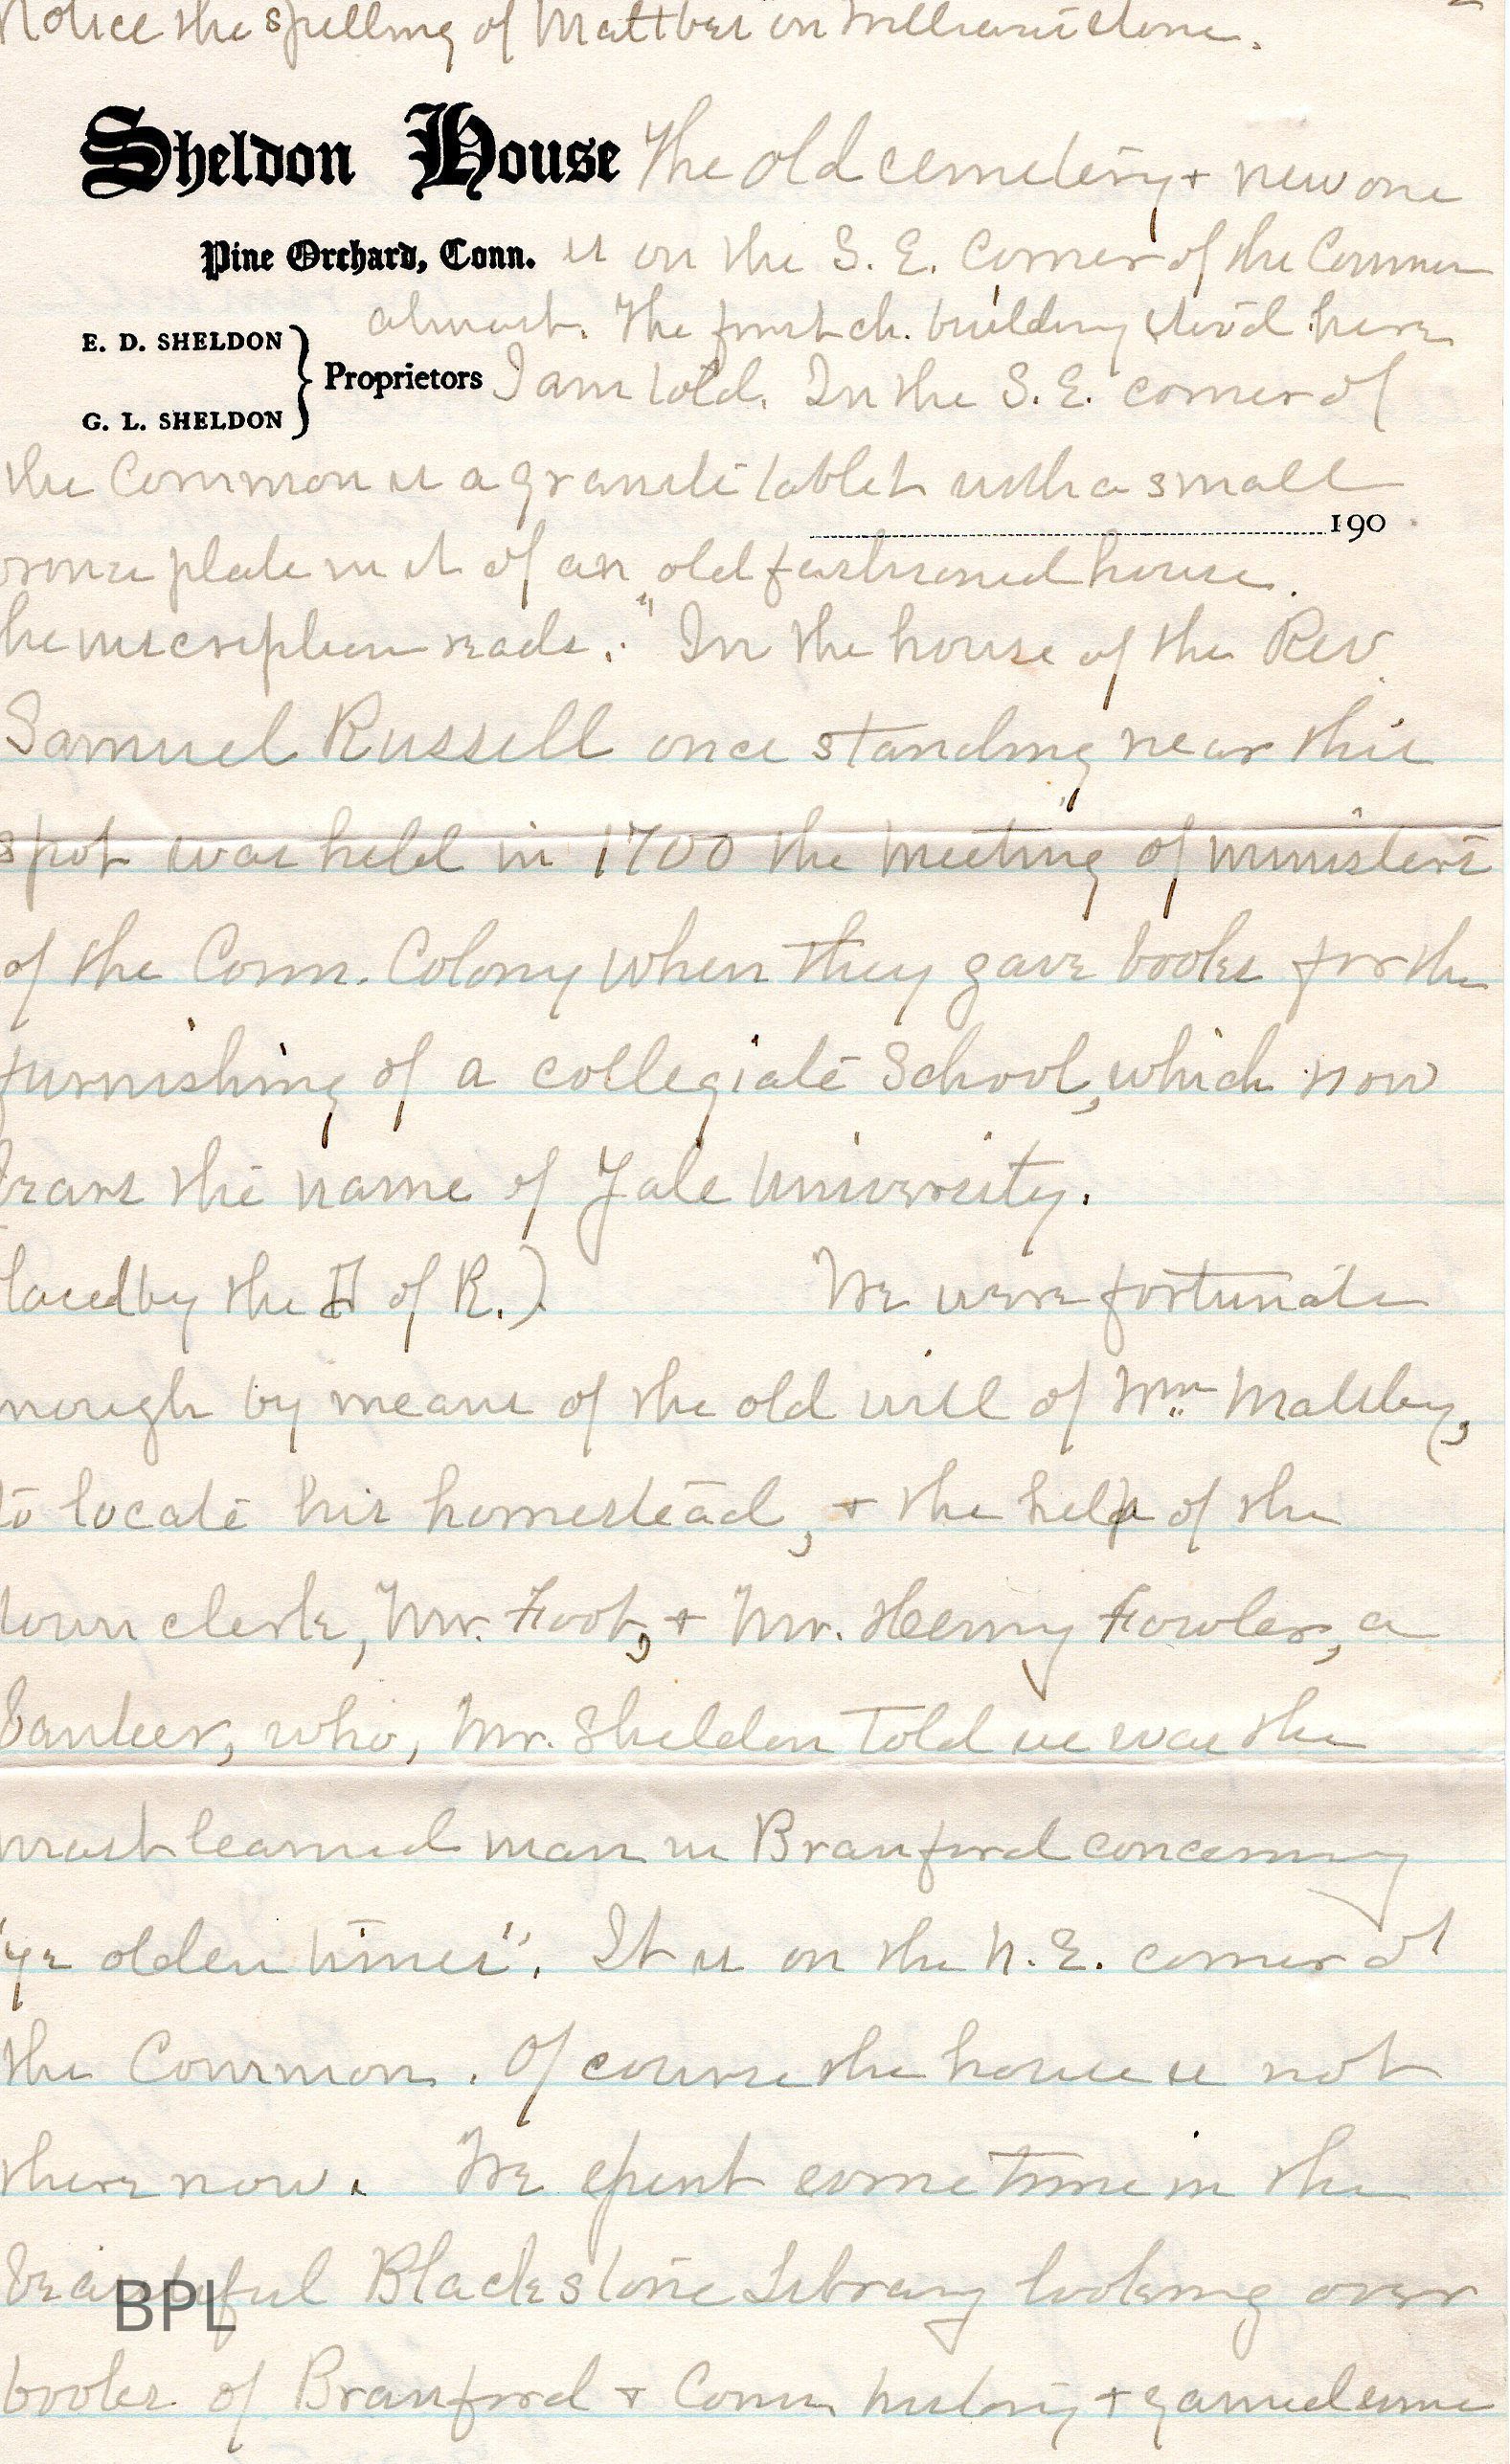 Notice the spelling of "Maltbei" on William's stone.
Sheldon House The old cemetery + new one
Pine Orchard, Conn. is on the S. E. Corner of the Common
almost. The first ch. building stood here
E. D. SHELDON
G. L. SHELDON
Proprietors I am told. In the S. E. corner of
the Common is a granite tablet with a small
190
bronze plate in it of an old fashioned house.
The inscription reads: "In the house of the Rev.
Samuel Russell once standing near this
spot was held in 1700 the meeting of ministers
of the Conn. Colony when they gave books for the
furnishing of a collegiate School, which now
bears the name of Yale University."
laced by the D of R.) We were fortunate
nough by means of the old will of Wm Maltby,
to locate his homestead, + the help of the
town clerk, Mr. Foot, + Mr. Henry Fowler, a
banker, who, Mr. Sheldon told us was the
most learned man in Branford concerning
"ye olden times". It is on the N. E. corner of
the Common. Of course the house is not
there now. We spent some time in the
beautiful Blackstone Library looking over
books of Branford + Conn history + gained some
BPL